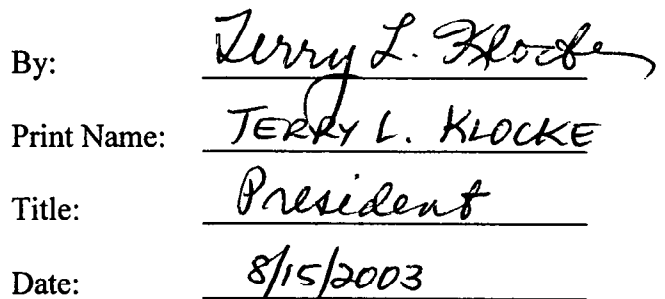 By: Terry L. Klocke
Print Name: TERRY L. KLOCKE
Title: President
Date: 8/15/2003